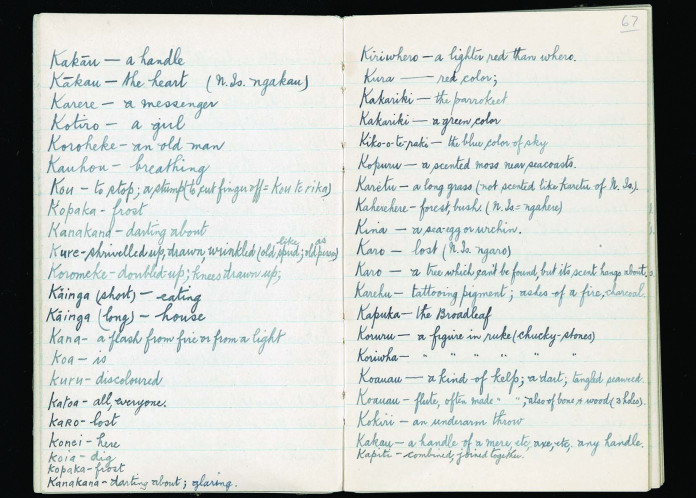 Kakāu — a handle
Kākau — the heart (N.Is. ngakau)
Karere — a messenger
Kotiro — a girl
Koroheke - an old man
Kauhou - breathing
Kou - to stop; a stump (to cut finger off = Kou te rika)
Kopaka - frost
Kanakana - darting about
Kure - shrivelled up, drawn, wrinkled (old like spud; old as person)
Koromeke - doubled-up; knees drawn up;
Kāinga (short) — eating
Kāinga (long) — house
Kana - a flash from fire or from a light
Koa - is
Kuru - discoloured
Katoa - all, everyone.
Karo - lost
Konei - here
Koia - dig
Kopaka - frost
Kanakana - darting about; glaring.
67
Kiriwhero - a lighter red than whero.
Kura — red color;
Kakariki — the parrokeet
Kakariki - a green color
Kiko-o-te-raki - the blue color of sky
Kopuru - a scented moss near seacoasts.
Karetu - a long grass (not scented like Karetu of N. Is).
Kaherehere - forest, bush. (N. Is = ngahere)
Kina - a sea-egg or urchin.
Karo - lost (N. Is. ngaro)
Karo - a tree which can't be found, but its scent hangs about.
Karehu - tattooing pigment; ashes of a fire, charcoal.
Kapuka - the Broadleaf
Koruru - a figure in ruke (chucky-stones)
Koriwha - " " " " "
Koauau — a kind of kelp; a dart; tangled seaweed.
Koauau - flute, often made " "; also of bone & wood (3 holes).
Kokiri - an underarm throw
Kakau - a handle of a mere, etc, axe, etc. any handle.
Kapiti - combined, joined together.